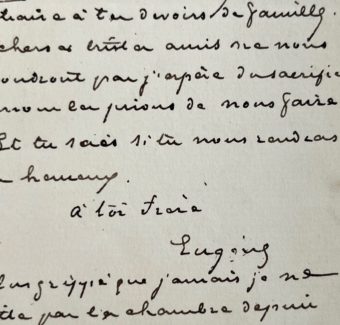 traire à tes devoirs de famille.
chers et tristes amis ne nous
voudront pas j'espère du sacrifice
nous les prions de nous faire
Et tu sais si tu nous rendras
heureux.
à toi frère
Eugène
Plus grippé que jamais je ne
pas la chambre depuis